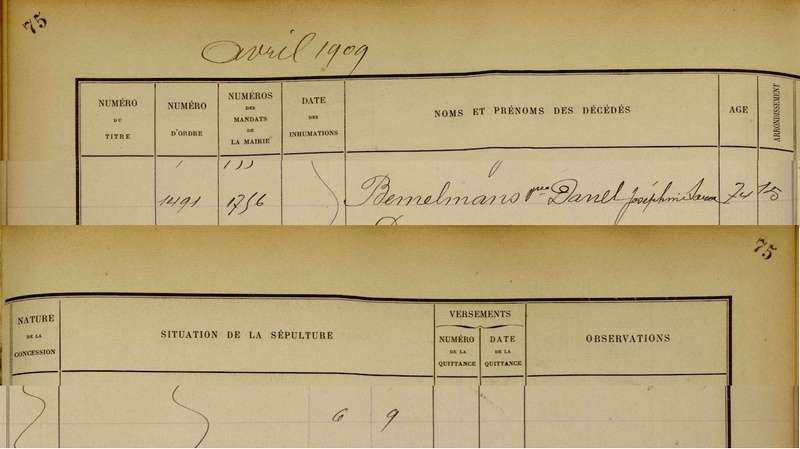 75
Avril 1909
NUMÉRO DU TITRE
NUMÉRO D'ORDRE
NUMÉROS DES MANDATS DE LA MAIRIE
DATE DES INHUMATIONS
NOMS ET PRÉNOMS DES DÉCÉDÉS
AGE
ARRONDISSEMENT
1491 1756 Bemelmans Danel Joséphine 74 15
75
NATURE DE LA CONCESSION
SITUATION DE LA SÉPULTURE
VERSEMENTS
NUMÉRO DE LA QUITTANCE
DATE DE LA QUITTANCE
OBSERVATIONS
6 9